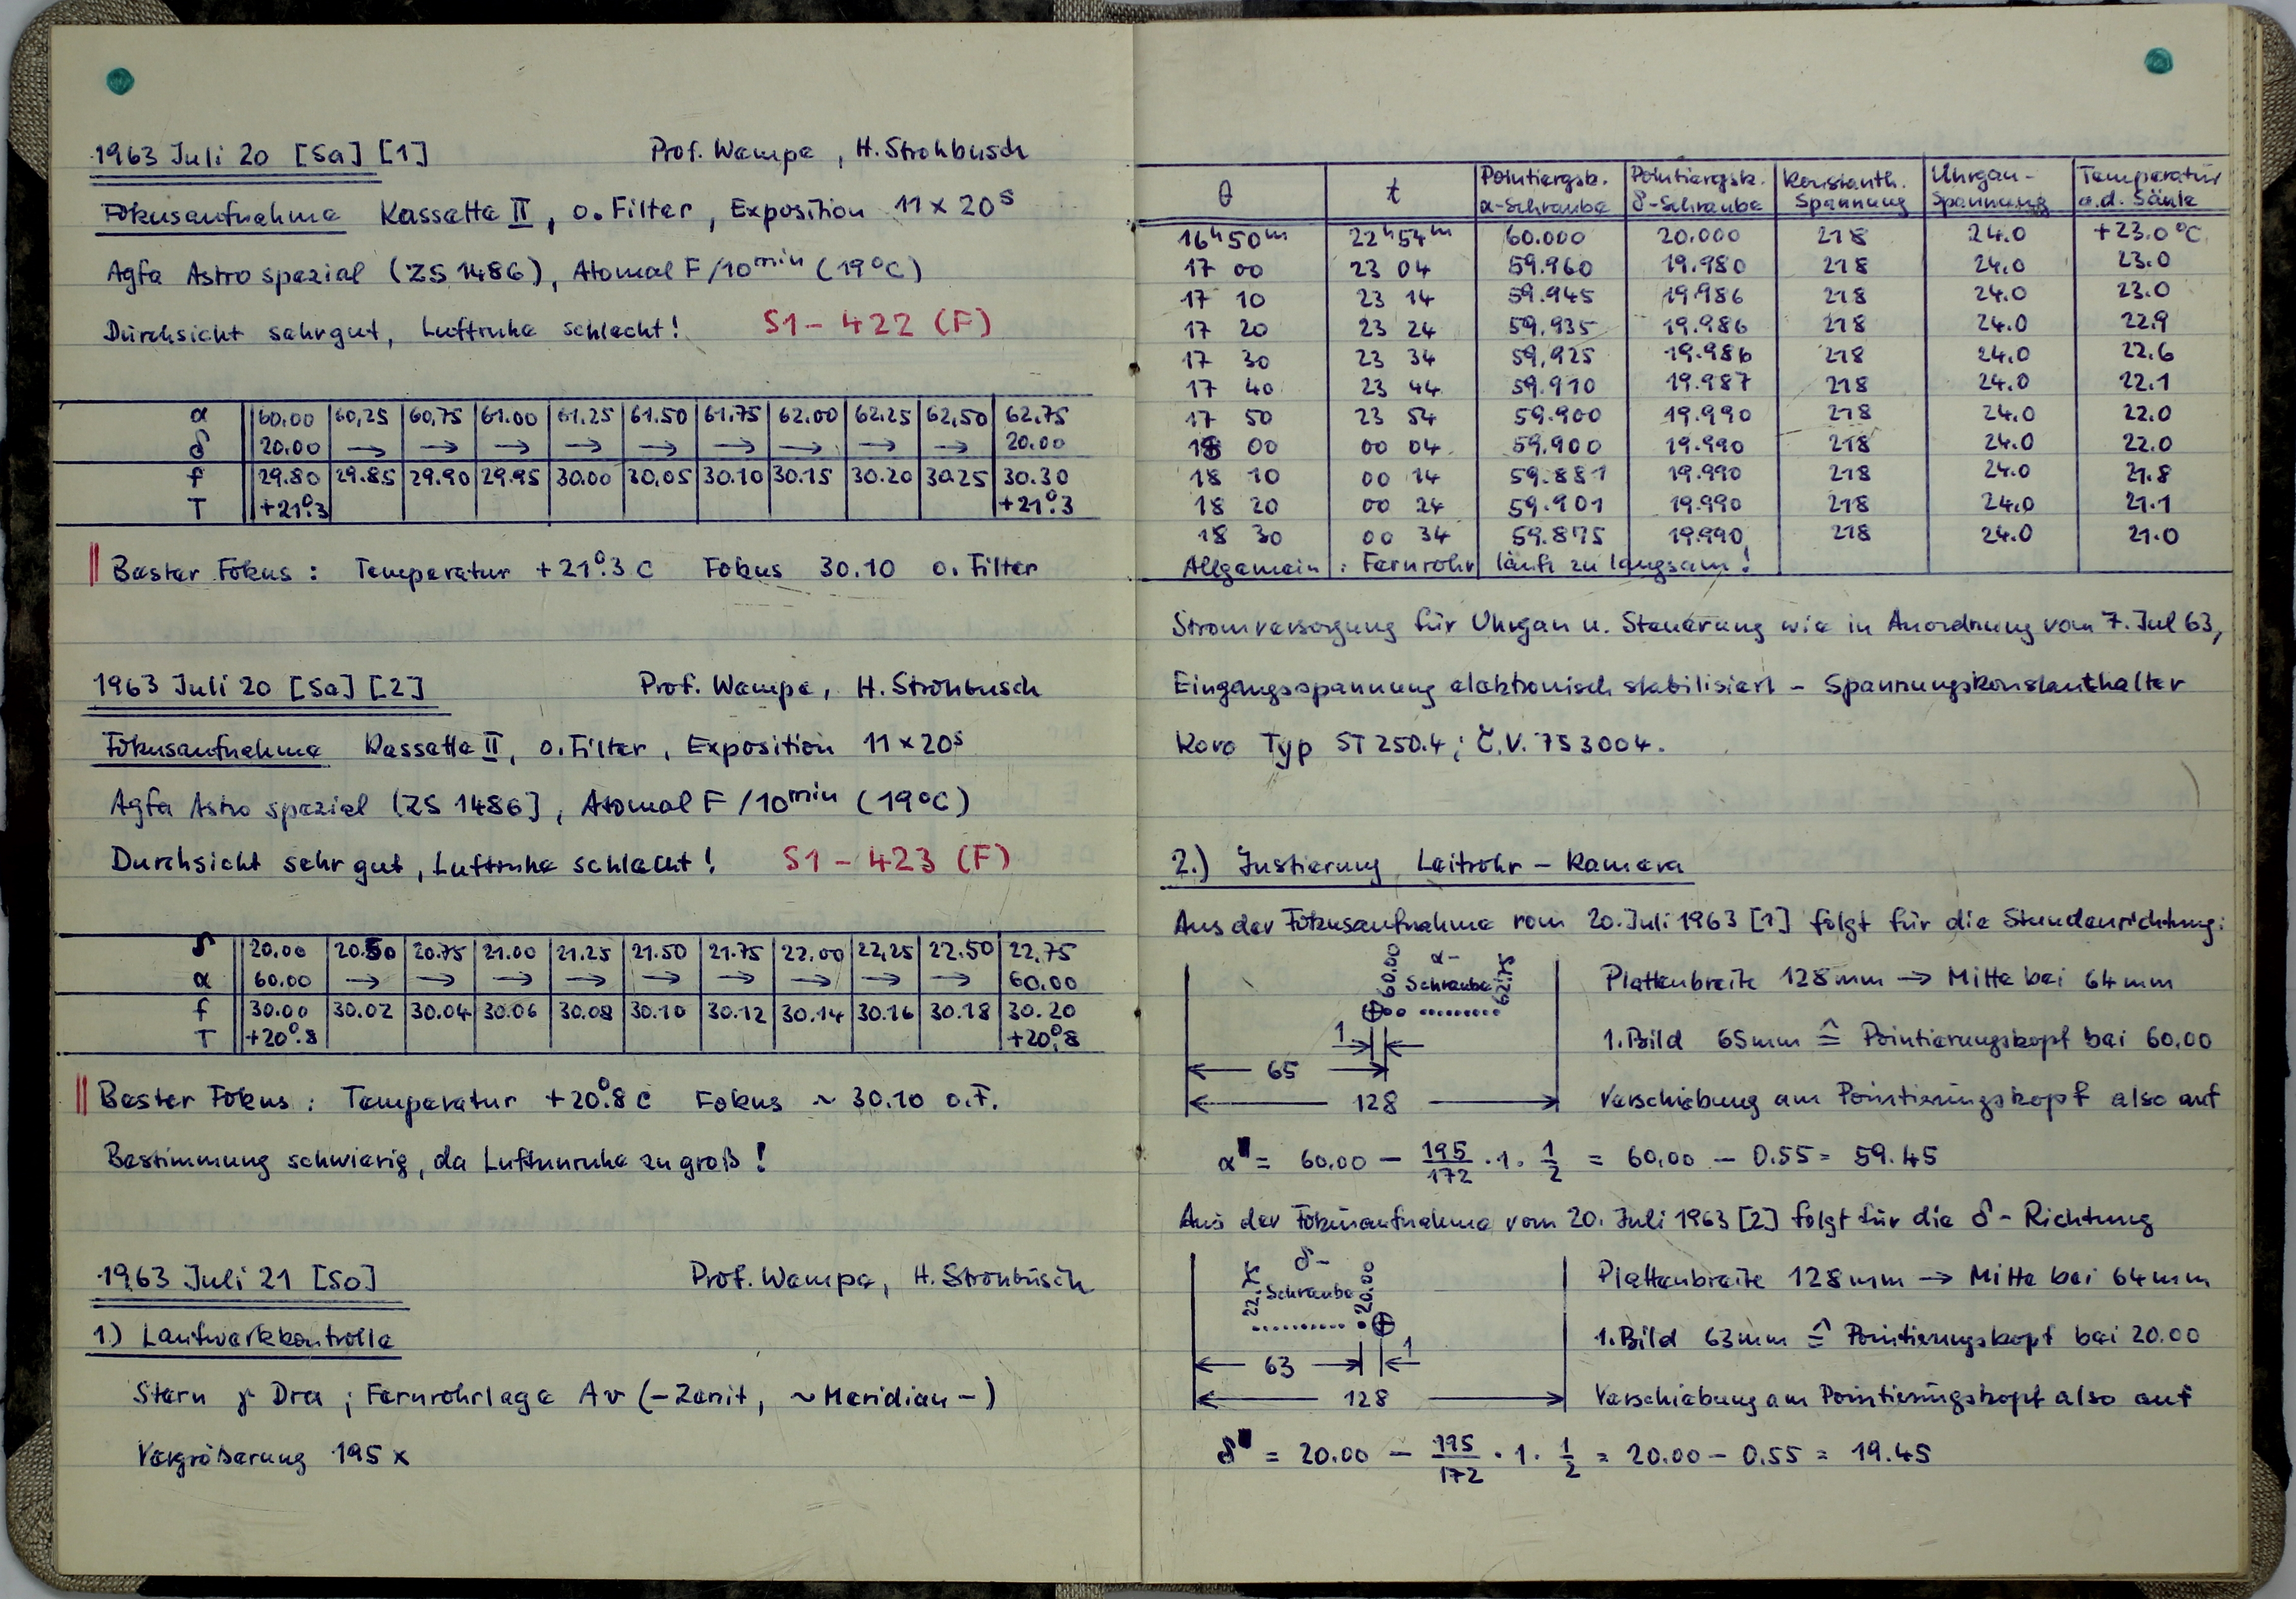 1963 Juli 20 [Sa] [1] Prof. Wempe, H. Strohbusch
Fokusaufnahme Kassette II, o. Filter, Exposition 11 x 20ˢ
Agfa Astro spezial (ZS 1486), Atomal F/10ᵐⁱⁿ (19°C)
Durchsicht sehr gut, Luftruhe schlecht! S1 – 422 (F)
α 60.00 60,25 60,75 61.00 61.25 61.50 61.75 62.00 62.25 62,50 62.75
δ 20.00 → → → → → → → → → 20.00
f 29.80 29.85 29.90 29.95 30.00 30.05 30.10 30.15 30.20 30.25 30.30
T +21°.3 +21°.3
Bester Fokus: Temperatur +21°.3 C Fokus 30.10 o. Filter
1963 Juli 20 [Sa] [2] Prof. Wempe, H. Strohbusch
Fokusaufnahme Kassette II, o. Filter, Exposition 11 x 20ˢ
Agfa Astro spezial (ZS 1486], Atomal F/10ᵐⁱⁿ (19°C)
Durchsicht sehr gut, Luftruhe schlecht! S1 – 423 (F)
δ 20.00 20.50 20.75 21.00 21.25 21.50 21.75 22.00 22,25 22.50 22.75
α 60.00 → → → → → → → → → 60.00
f 30.00 30.02 30.04 30.06 30.08 30.10 30.12 30.14 30.16 30.18 30.20
T +20°.8 +20°.8
Bester Fokus: Temperatur +20°.8 C Fokus ~ 30.10 o.F.
Bestimmung schwierig, da Luftunruhe zu groß!
1963 Juli 21 [So] Prof. Wempe, H. Strohbusch
1.) Laufwerkkontrolle
Stern γ Dra; Fernrohrlage Av (–Zenit, ~Meridian–)
Vergrößerung 195 x
θ t Pointiergsk. α-Schraube Pointiergsk. δ-Schraube Konstanth. Spannung Uhrgan-Spannung Temperatur a.d. Säule
16ʰ50ᵐ 22ʰ54ᵐ 60.000 20.000 218 24.0 +23.0 °C
17 00 23 04 59.960 19.980 218 24.0 23.0
17 10 23 14 59.945 19.986 218 24.0 23.0
17 20 23 24 59.935 19.986 218 24.0 22.9
17 30 23 34 59,925 19.986 218 24.0 22.6
17 40 23 44 59.910 19.987 218 24.0 22.1
17 50 23 54 59.900 19.990 218 24.0 22.0
18 00 00 04 59.900 19.990 218 24.0 22.0
18 10 00 14 59.881 19.990 218 24.0 21.8
18 20 00 24 59.901 19.990 218 24.0 21.1
18 30 00 34 59.875 19.990 218 24.0 21.0
Allgemein: Fernrohr läuft zu langsam!
Stromversorgung für Uhrgan u. Steuerung wie in Anordnung vom 7. Jul 63,
Eingangsspannung elektronisch stabilisiert – Spannungskonstanthalter
Kovo Typ ST 250.4; Č.V. 753004.
2.) Justierung Leitrohr – Kamera
Aus der Fokusaufnahme vom 20. Juli 1963 [1] folgt für die Stundenrichtung:
60.00 α-Schraube 62.75
Plattenbreite 128 mm → Mitte bei 64 mm
1
1. Bild 65mm ≙ Pointierungskopf bei 60.00
65
128
Verschiebung am Pointierungskopf also auf
α = 60.00 – 195/172 · 1 · 1/2 = 60.00 – 0.55 = 59.45
Aus der Fokusaufnahme vom 20. Juli 1963 [2] folgt für die δ-Richtung
22.75 δ-Schraube 20.00
Plattenbreite 128mm → Mitte bei 64mm
1. Bild 63mm ≙ Pointierungskopf bei 20.00
63 1
128
Verschiebung am Pointierungskopf also auf
δ = 20.00 – 195/172 · 1 · 1/2 = 20.00 – 0.55 = 19.45